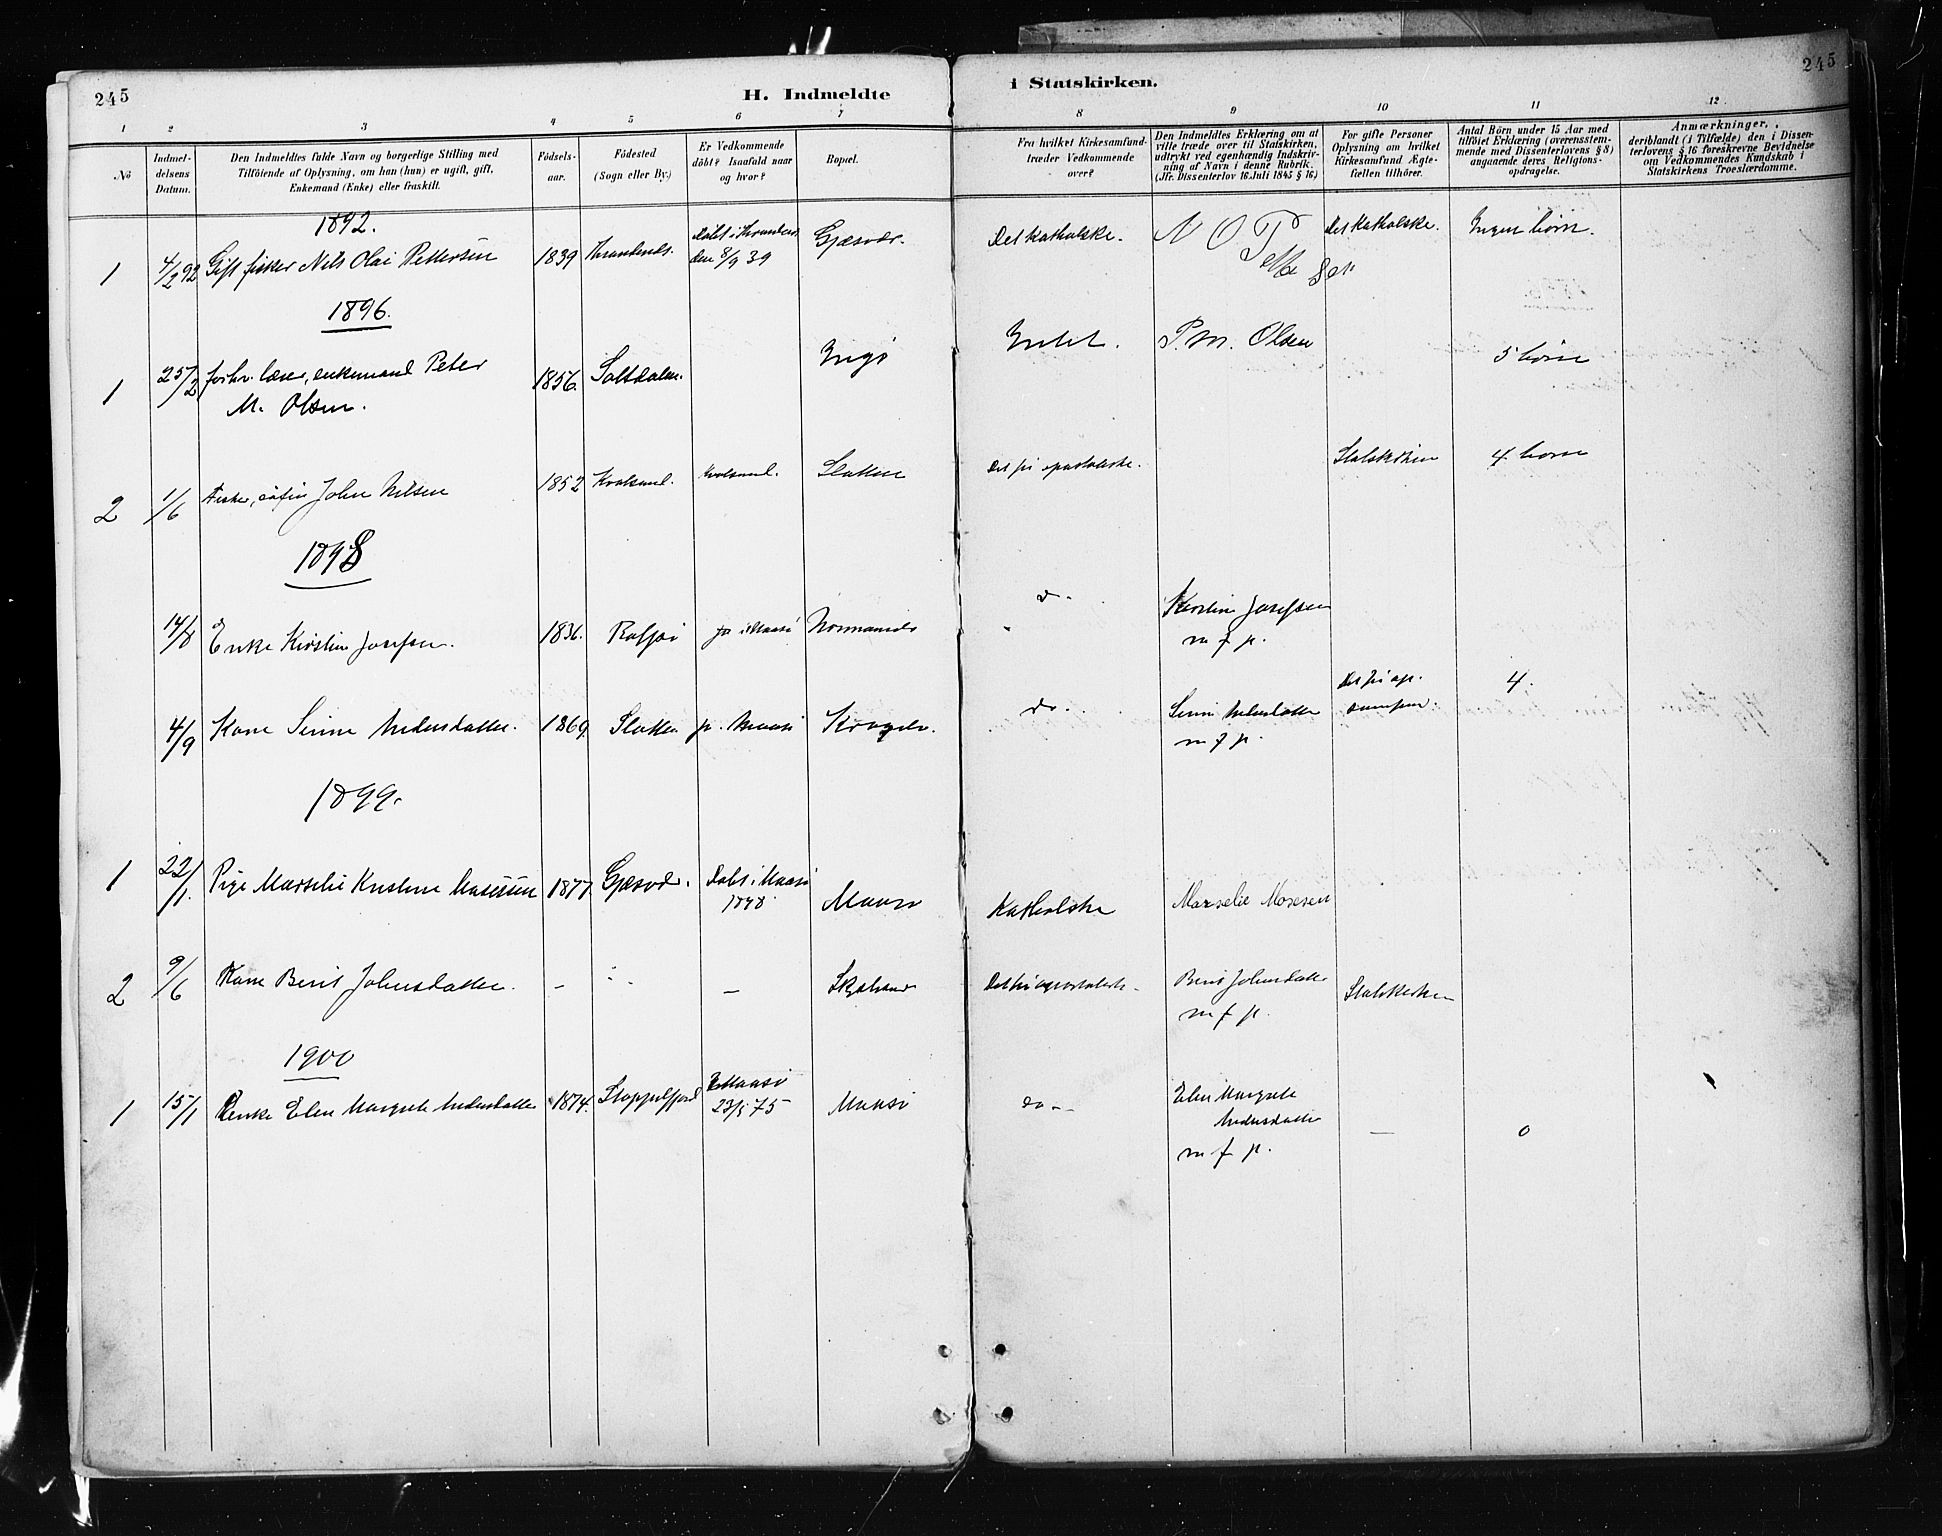 245
H. Indmeldte
i Statskirken.
245
1 2 3 4 5 6 7 8 9 10 11 12
No
Indmeldelsens Datum.
Den Indmeldtes fulde Navn og borgerlige Stilling med
Tilföiende af Oplysning, om han (hun) er ugift, gift,
Enkemand (Enke) eller fraskilt.
Födsels-
aar.
Födested
(Sogn eller By.)
Er Vedkommende
döbt? Isaafald naar
og hvor?
Bopæl.
Fra hvilket Kirkesamfund
træder Vedkommende
over?
Den Indmeldtes Erklæring om at
ville træde over til Statskirken,
udtrykt ved egenhændig Indskriv-
ning af Navn i denne Rubrik.
(Jfr. Dissenterlov 16 Juli 1845 § 16)
For gifte Personer
Oplysning om hvilket
Kirkesamfund Ægte-
fællen tilhörer.
Antal Börn under 15 Aar med
tilföiet Erklæring (overensstem-
mende med Dissenterlovens § 8)
angaaende deres Religions-
opdragelse.
Anmærkninger,
deriblandt (i Tilfælde) den i Dissen-
terlovens § 16 foreskrevne Bevidnelse
om Vedkommendes Kundskab i
Statskirkens Troeslærdomme.
1892.
1 4/2 92 Gift fisker Nils Olai Pettersen 1839 Döbt i den 8/9 39 Gjæsvær. Det katholske. N O P Det Katholske. Ingen börn.
1896.
1 25/2 forhv. lærer, enkemand Peter
M. Olsen. 1856. Saltdalen. Ingö Intet. P. M. Olsen 5 börn
2 1/6 Fisker, John Nilsen 1852 Kvalsund. Kvalsund. Slotten Det fri apostolske. Statskirken 4 börn
1898
14/8 Enke Kirstin Josefsen. 1836. Rolfsö Do. Kirstin Josefsen
m f p.
4/9 Kone Sirine Andersdatter. 1869. Slotten Maasö do. Sirine Andersdatter
m f p. 4.
1899.
1 22/1. Pige Marselie Kristine Mosesen 1877 Gjæsvær. Döbt i Maasö
1878. Maasö Katholske Marselie Mosesen
2 9/6 Kone Berit Johnsdatter. - - - Det fri apostolske - Berit Johnsdatter
m f p. Statskirken
1900
1 15/1 Elen Margrete Andersdatter 1874. Stoppelfjord Maasö
23/5 75 Maasö do - Elen Margrete
Andersdatter
m f p. - 0